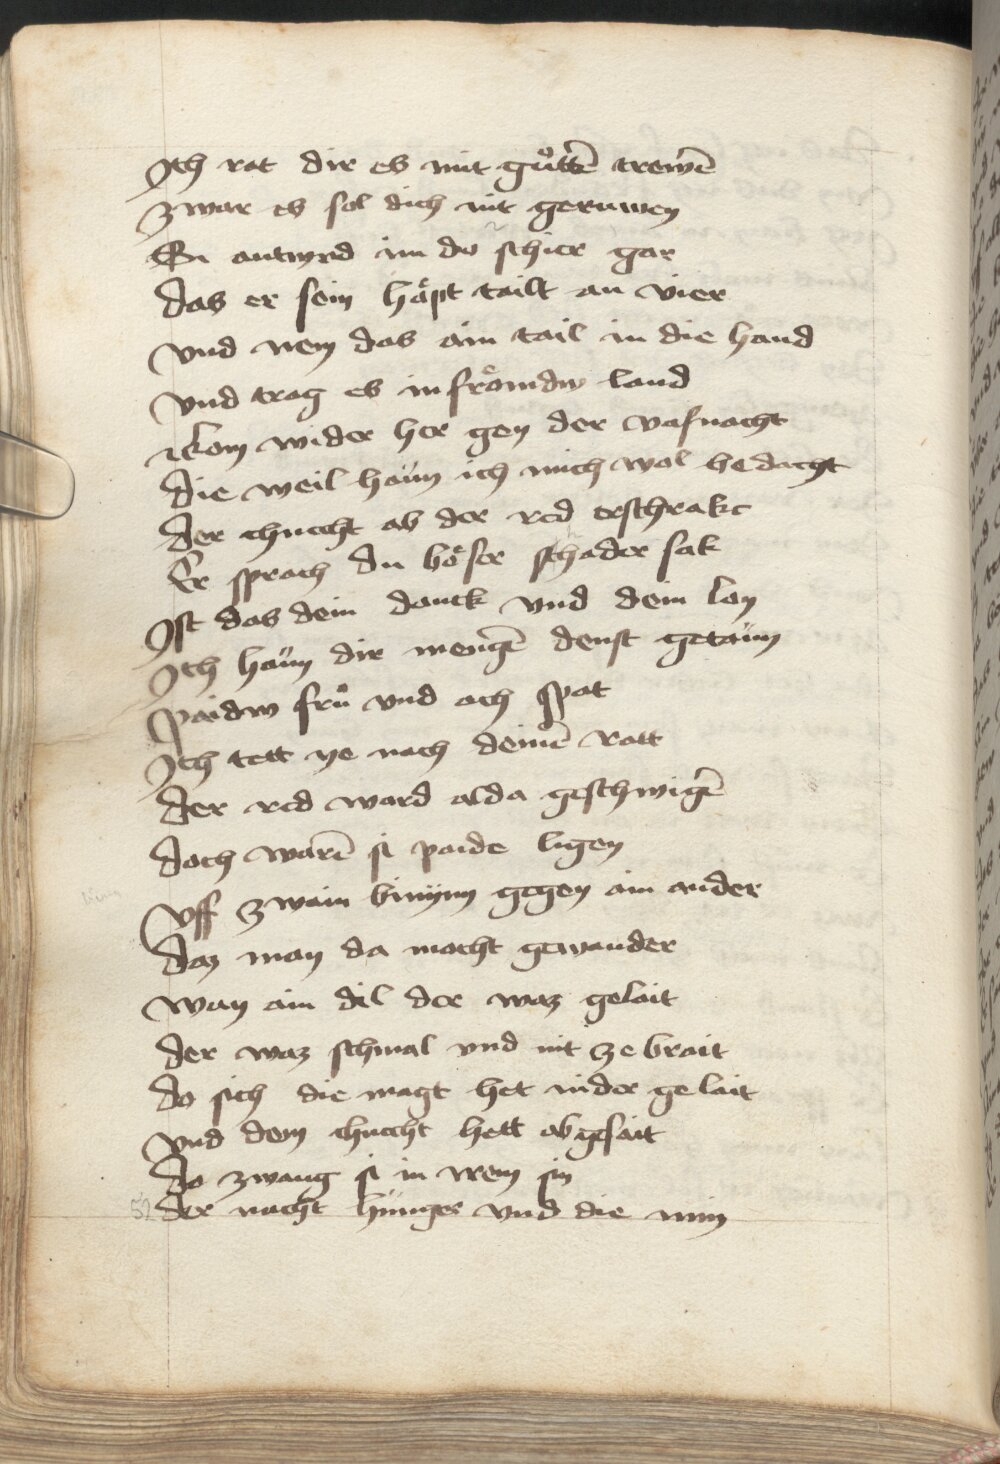 Ich rat dir es mit gůttē trewē
zwar es sol dich nit geruwen
Si antwrd im do schier gar
das er sein hǎpt tailt an vier
vnd nem das ain tail in die hand
vnd trag es in frǒmdw land
kom wider her gen der vasnacht
die weil haun ich mich wol bedacht
der chnecht ab der red erschrakt
Er sprach du bǒser schader sak
Ist das dein danck vnd dein lon
Ich haun dir mengē denst getaun
paidw frů vnd ach spat
Ich tett ye nach deinē ratt
der red ward alda geschwigē
doch warē si paide ligen
vff zwain binynn gegen ain ander
daz man da macht gewander
wan ain dil der waz gelait
der waz schmal vnd nit ze brait
do sich die magt het nider gelait
vnd dem chnecht hett ab gesait
do zwang si in irem sin
der nacht hunger vnd die min